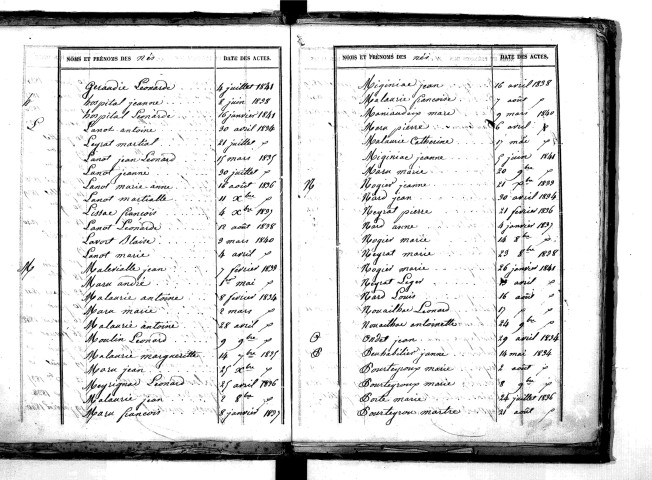 NOMS ET PRÉNOMS DES nés DATE DES ACTES.
Geraudie Leonarde 4 juillet 1841
hospital jeanne 8 juin 1838
hospital Leonarde 16 janvier 1841
L Lanot antoine 30 avril 1834
Leyrat martial 21 juillet
Lanot jean Leonard 15 mars 1835
Lanot jeanne 30 juillet
Lanot marie anne 16 août 1836
Lanot martialle 11 Xbre
Lissac françois 4 Xbre 1837
Lanot Leonarde 12 août 1838
Lavort Blaise 3 mars 1840
Lanot marie 4 avril
M Malevialle jean 7 février 1833
Maru andré 1er mai
Malaurie antoine 8 février 1834
Maru marie 2 mars
Malaurie antoine 28 avril
Moulin Leonard 9 9bre
Malaurie marguerite 14 7bre 1835
Maru jean 25 Xbre
Meyrignac Leonard 25 avril 1836
Malaurie jean 2 8bre
Maru françois 8 janvier 1837
NOMS ET PRÉNOMS DES nés DATE DES ACTES.
Miginiac jean 16 avril 1838
Malaurie françoise 7 août
marie 9 mars 1840
Maru pierre 6 avril
Malaurie Catherine 17 mai
Miginiac jeanne 5 juin 1841
Maru marie 20 9bre
N Nogier jeanne 21 1833
Nard jean 30 avril 1834
Neyrat pierre 21 février 1836
Nard anne 4 janvier 1837
Nogier marie 14 8bre
Neyrat marie 23 8bre 1838
Nogier marie 26 janvier 1841
Neyrat Leger 19 avril
Nard Louis 16 août
Nouailhac Leonard 17
Nouailhac antoinette 24 9bre
O Ondet jean 29 avril 1834
P Peuhabilier jeanne 14 mai 1834
Pourteyroux marie 2 août
Pourteyroux marie 8 9bre
Porte marie 24 juillet 1836
Pourteyroux marthe 21 août